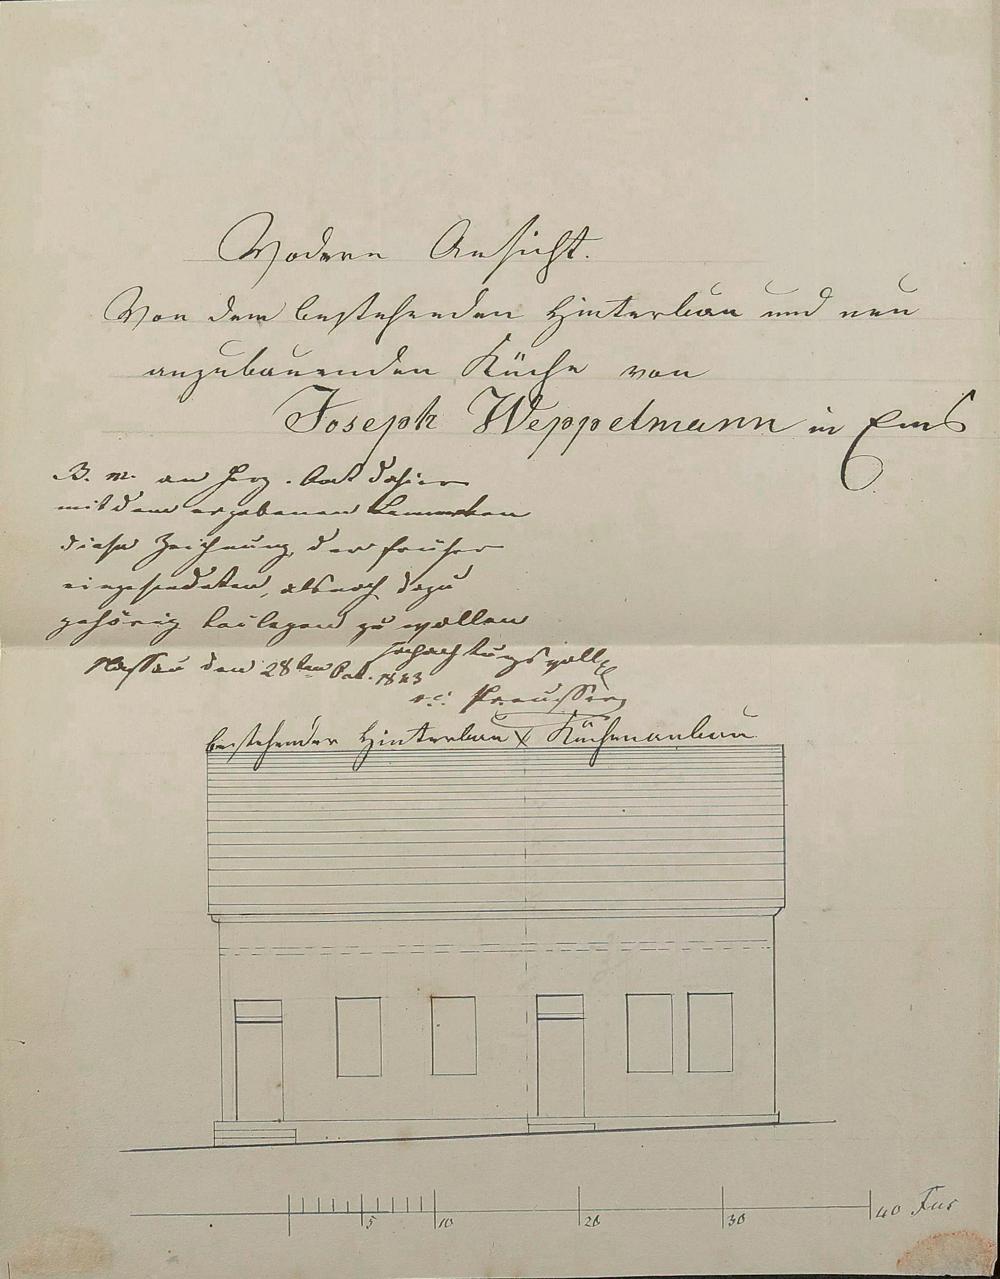 Vodern Ansicht.
Von dem bestehenden Hinterbau und neu
anzubauenden Küche von
Joseph Weppelmann in Ems
B. m. an Herz. Amt dahier
mit dem ergebenen Bemerken
diese Zeichnung, der früher
eingesendeten, als noch dazu
gehörig beilegen zu wollen
hochachtungsvoll
Nassau den 28ten Oct. 1843
Preusser
bestehender Hinterbau x Küchenanbau
5 10 20 30 40 Fus